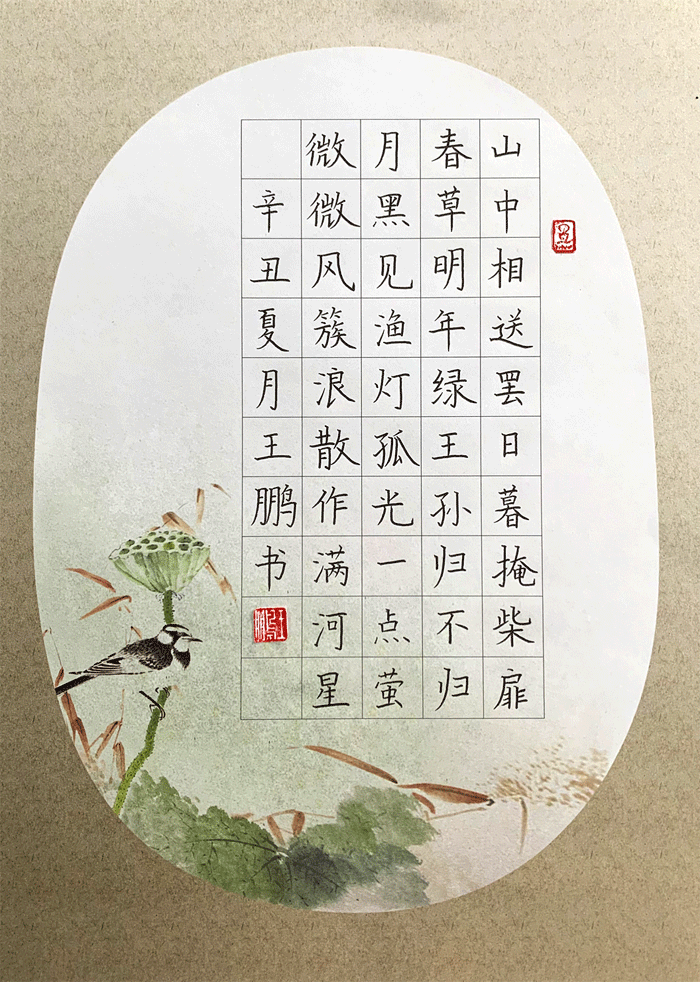 山中相送罢日暮掩柴扉
春草明年绿王孙归不归
月黑见渔灯孤光一点萤
微微风簇浪散作满河星
辛丑夏月王鹏书